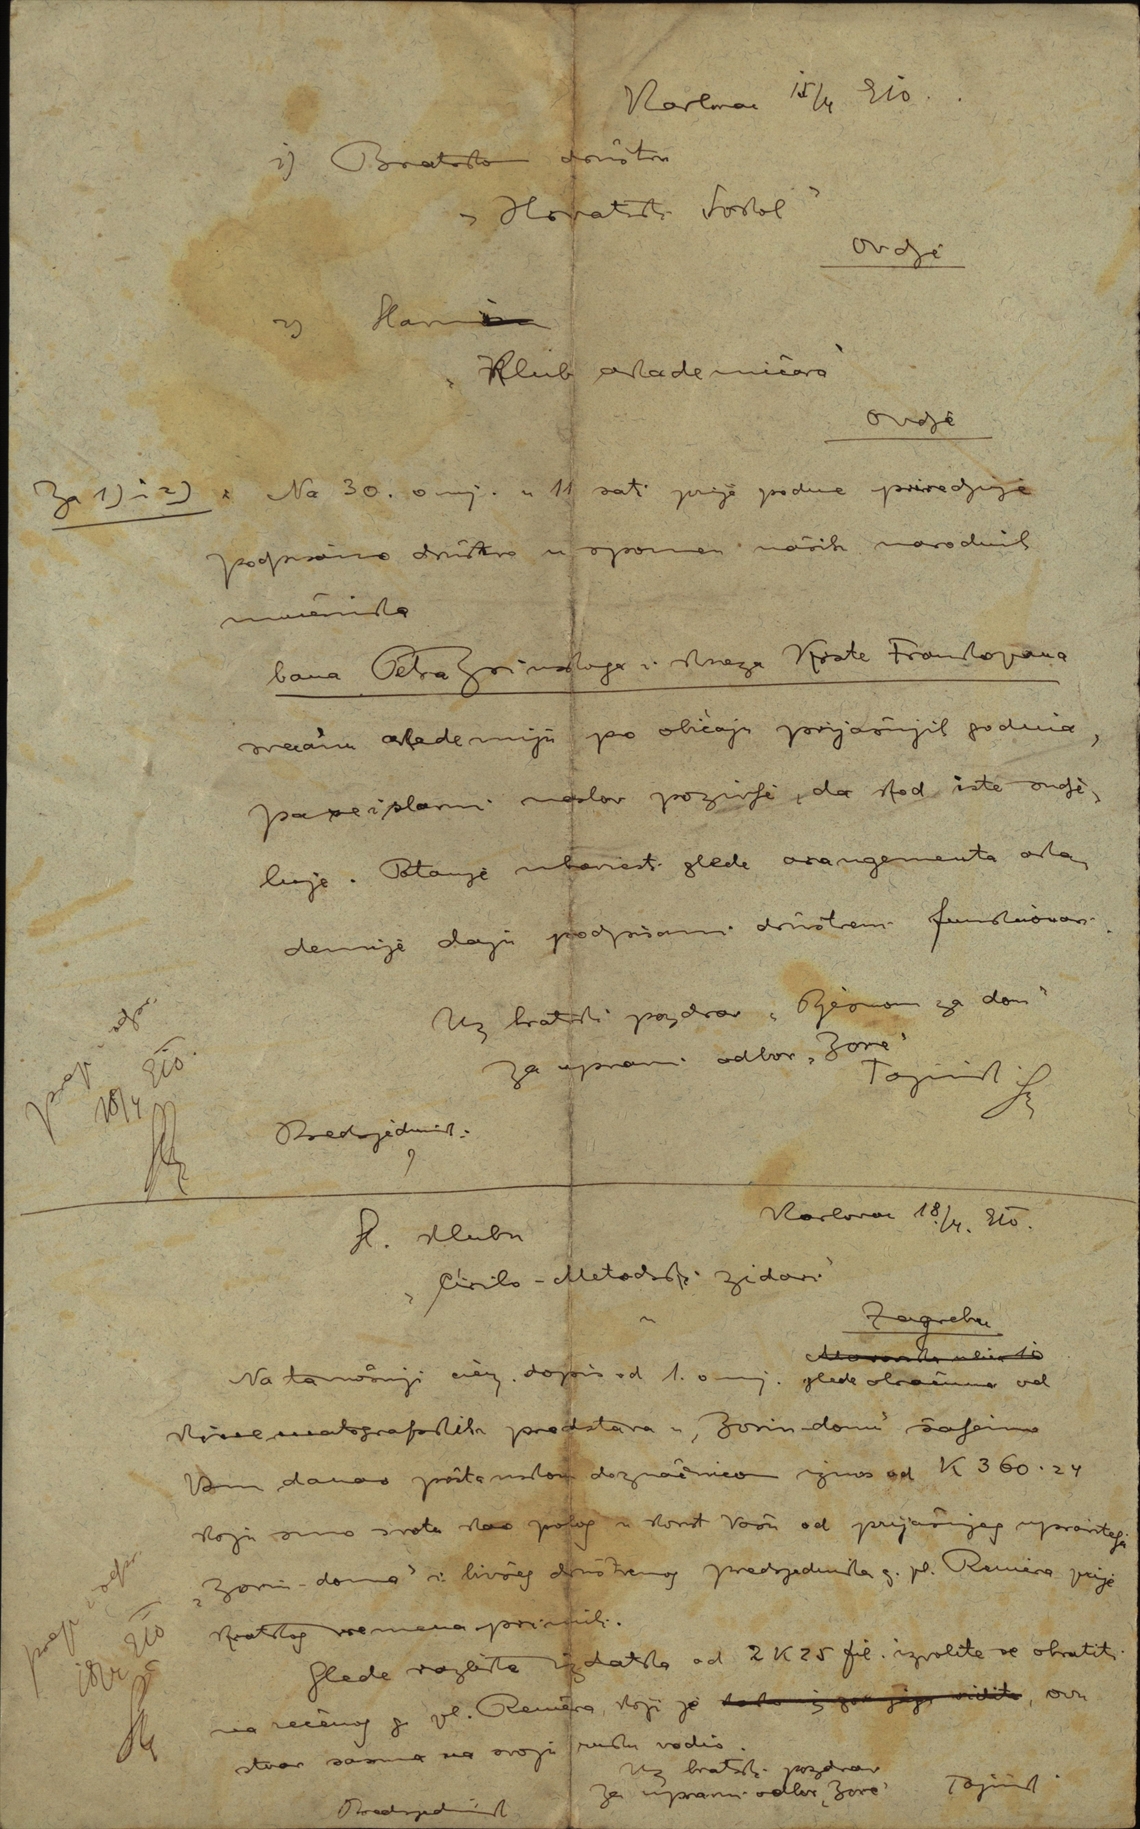 Karlovac 15/4 910.
1) Bratskom društvu
„Hrvatski Sokol"
Ovdje
2) Slavni
„Klub akademičara"
Ovdje
Za 1) i 2)
Na 30. o mj. u 11 sati prije podne priredjuje
podpisano društvo u spomen naših narodnih
mučenika
bana Petra Zrinskoga i kneza Krste Frankopana
svečanu akademiju po običaju prijašnjih godina,
pa se i slavni naslov pozivlje, da kod iste sudje-
luje. Potanje ubaviesti glede arangementa aka-
demije daju podpisani društveni funkcionari.
Uz bratski pozdrav „Pjesmom za dom"
Za upravni odbor „Zore"
Tajnik
Predsjednik
prep. i odpr.
18/4 910.
Karlovac 18/4. 910.
Sl. klubu
„Ćirilo-Metodski zidari"
u
Zagrebu
Na tamošnji cienj. dopis od 1. o mj. glede obračuna od
kinematografskih predstava u „Zorin-domu" šaljemo
Vam danas poštanskom doznačnicom iznos od K 360.24
koju smo svotu kao polog u korist Vašu od prijašnjeg upravitelja
„Zorin-doma" i bivšeg društvenog predsjednika g. pl. Reinera prije
kratkog vremena primili.
Glede razlike izdatka od 2 K 25 fil. izvolite se obratiti
na rečenog g. pl. Reinera, koji je, ovu
stvar sasma na svoju ruku vodio.
Uz bratski pozdrav
Za upravni odbor „Zore"
Tajnik
Predsjednik
prep. i odpr.
18/4 910